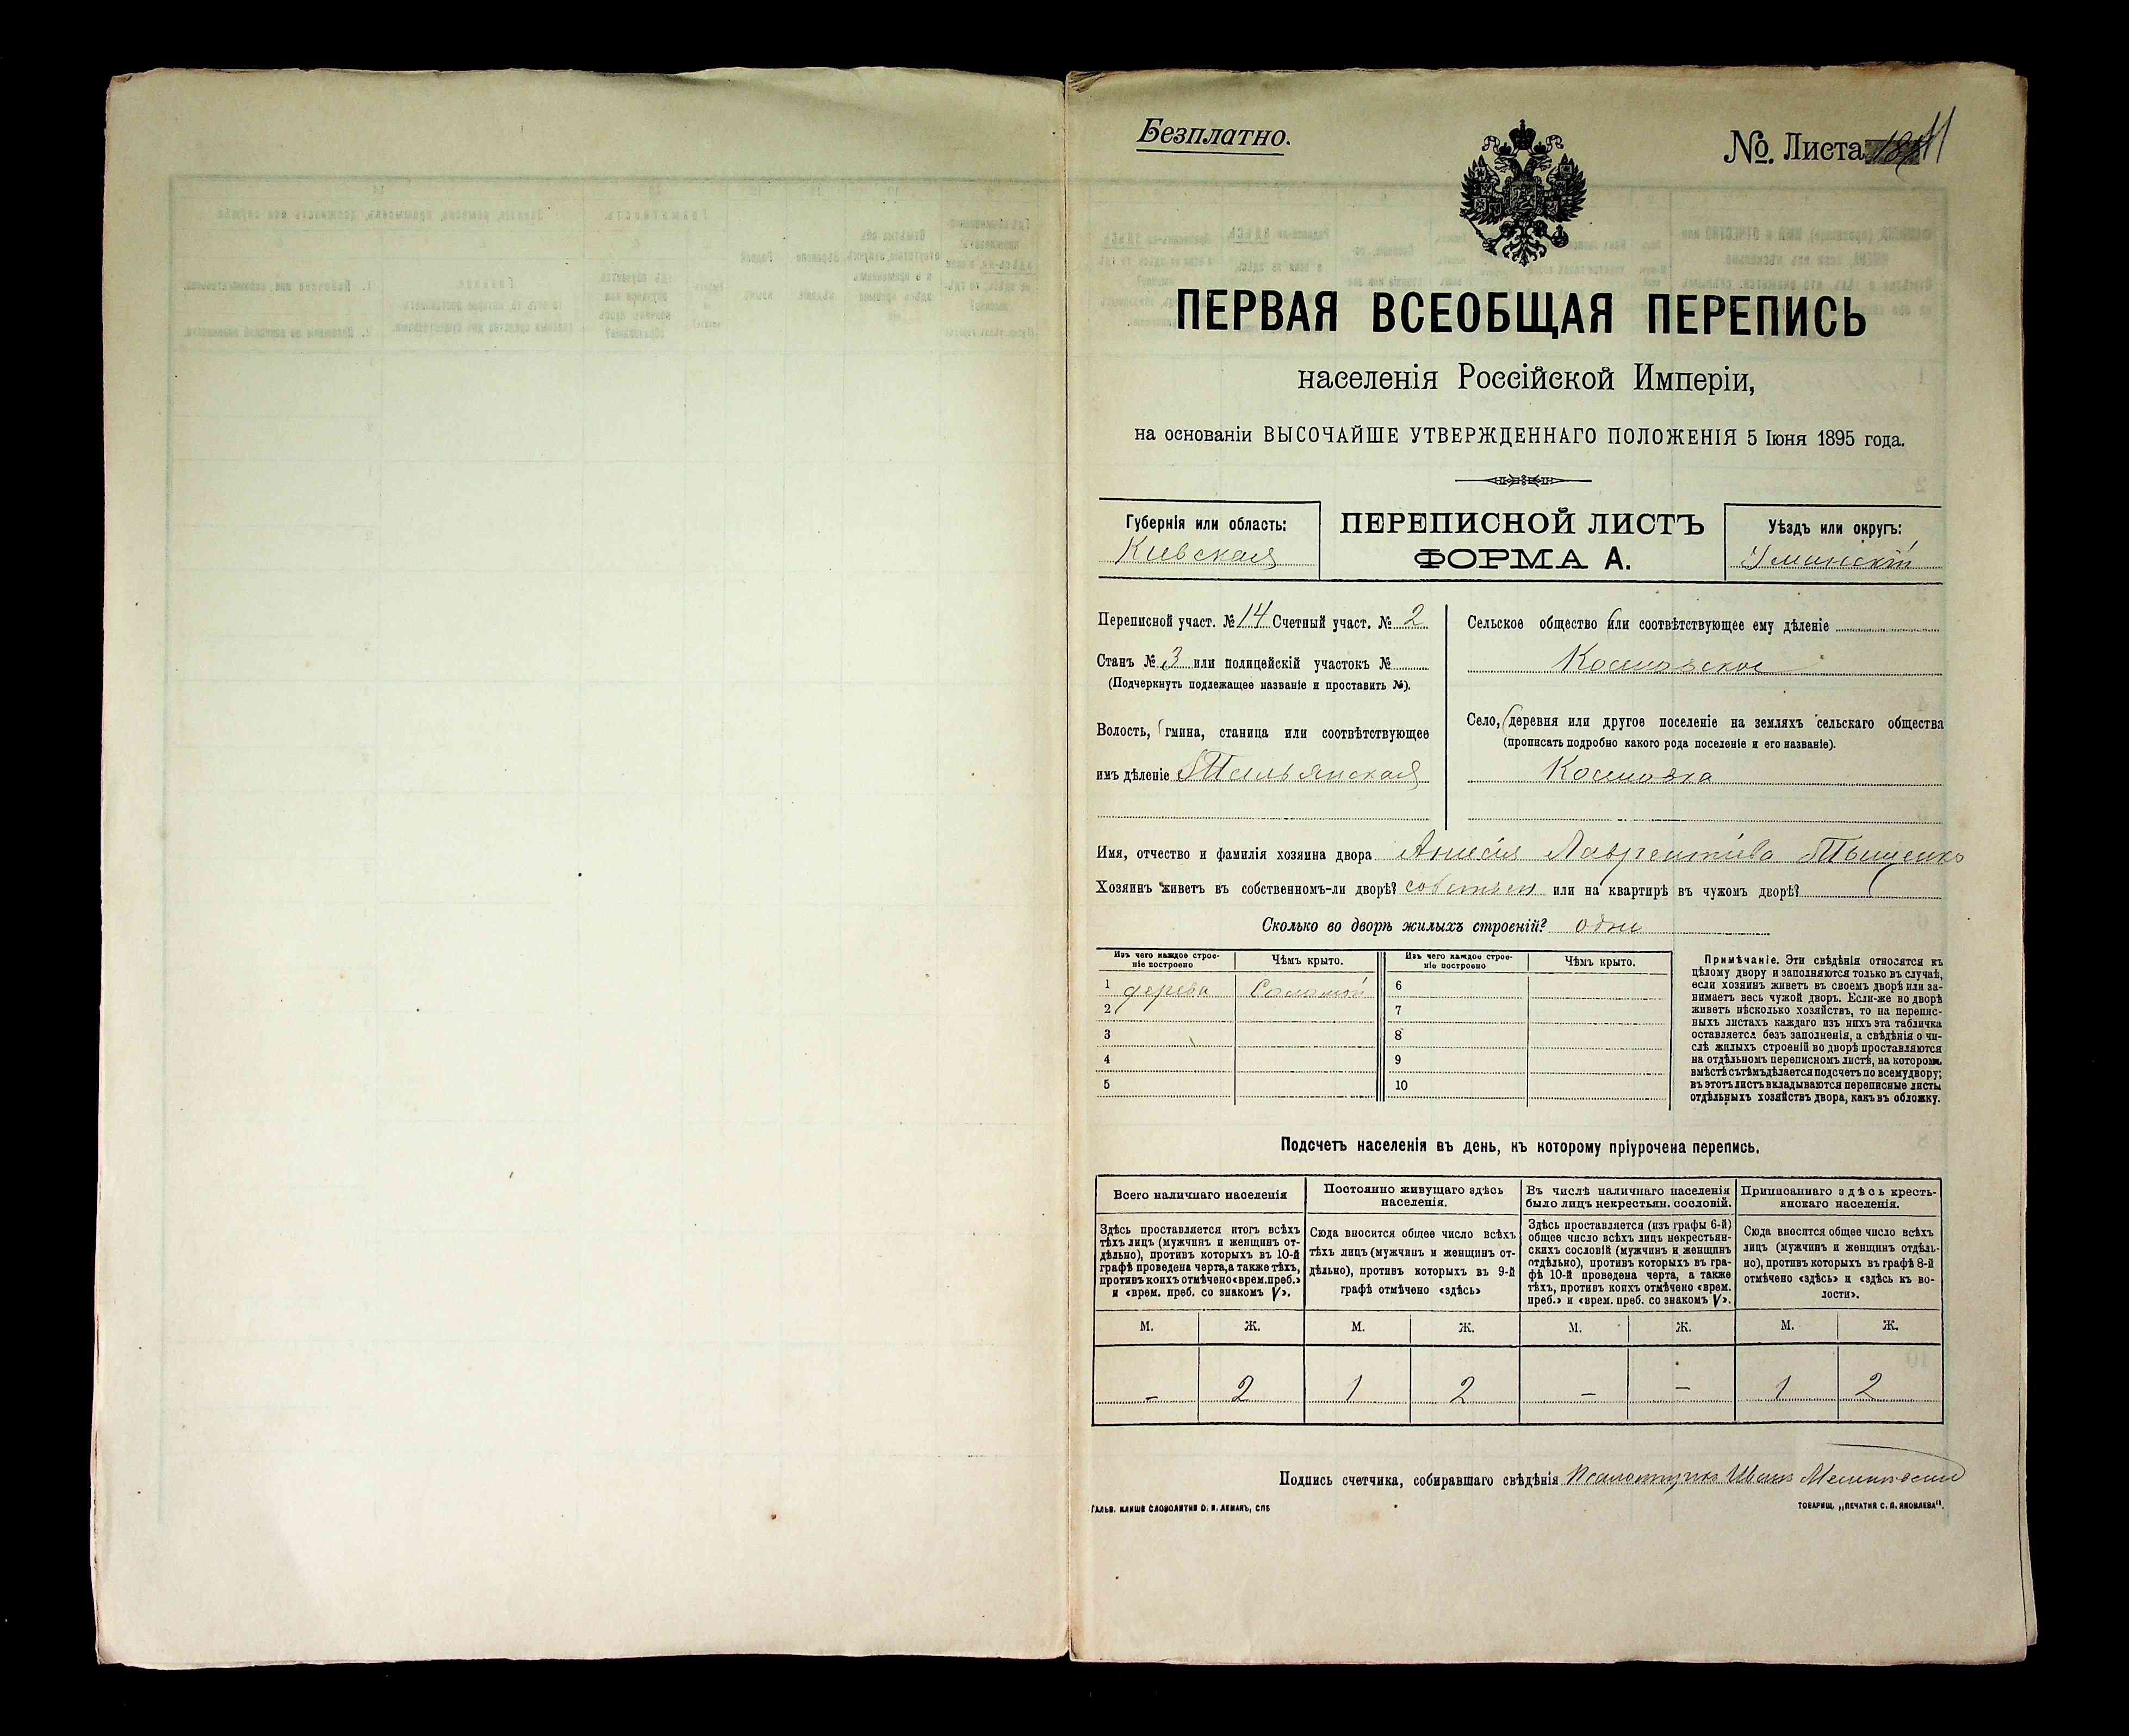 Безплатно.
No. Листа
ПЕРВАЯ ВСЕОБЩАЯ ПЕРЕПИСЬ
населенія Россійской Имперіи,
на основаніи ВЫСОЧАЙШЕ УТВЕРЖДЕННАГО ПОЛОЖЕНІЯ 5 Іюня 1895 года.
Губернія или область:
Киевская
ПЕРЕПИСНОЙ ЛИСТЪ
ФОРМА А.
Уѣздъ или округъ:
Уманскій
Переписной участ. № 14 Счетный участ. № 2
Станъ № 3 или полицейскій участокъ №
(Подчеркнуть подлежащее названіе и проставить №).
Волость, гмина, станица или соотвѣтствующее
имъ дѣленіе
Сельское общество или соотвѣтствующее ему дѣленіе
Село, деревня или другое поселеніе на земляхъ сельскаго общества
(прописать подробно какого рода поселеніе и его названіе).
Имя, отчество и фамилія хозяина двора
Хозяинъ живетъ въ собственномъ-ли дворѣ? или на квартирѣ въ чужомъ дворѣ?
Сколько во дворѣ жилыхъ строеній? одно
Изъ чего каждое строе-
ніе построено
Чѣмъ крыто.
Изъ чего каждое строе-
ніе построено
Чѣмъ крыто.
1 дерева Соломой 6
2 7
3 8
4 9
5 10
Примѣчаніе. Эти свѣдѣнія относятся къ
цѣлому двору и заполняются только въ случаѣ,
если хозяинъ живетъ въ своемъ дворѣ или за-
нимаетъ весь чужой дворъ. Если-же во дворѣ
живетъ нѣсколько хозяйствъ, то на перепис-
ныхъ листахъ каждаго изъ нихъ эта табличка
оставляется безъ заполненія, а свѣдѣнія о чи-
слѣ жилыхъ строеній во дворѣ проставляются
на отдѣльномъ переписномъ листѣ, на которомъ
вмѣстѣ съ тѣмъ дѣлается подсчетъ по всему двору;
въ этотъ листъ вкладываются переписные листы
отдѣльныхъ хозяйствъ двора, какъ въ обложку.
Подсчетъ населенія въ день, къ которому пріурочена перепись.
Всего наличнаго населенія
Здѣсь проставляется итогъ всѣхъ
тѣхъ лицъ (мужчинъ и женщинъ от-
дѣльно), противъ которыхъ въ 10-й
графѣ проведена черта, а также тѣхъ,
противъ коихъ отмѣчено «врем. преб.»
и «врем. преб. со знакомъ V».
Постоянно живущаго здѣсь
населенія.
Сюда вносится общее число всѣхъ
тѣхъ лицъ (мужчинъ и женщинъ от-
дѣльно), противъ которыхъ въ 9-й
графѣ отмѣчено «здѣсь»
Въ числѣ наличнаго населенія
было лицъ некрестьян. сословій.
Здѣсь проставляется (изъ графы 6-й)
общее число всѣхъ лицъ некрестьян-
скихъ сословій (мужчинъ и женщинъ
отдѣльно), противъ которыхъ въ гра-
фѣ 10-й проведена черта, а также
тѣхъ, противъ коихъ отмѣчено «врем.
преб.» и «врем. преб. со знакомъ V».
Приписаннаго здѣсь кресть-
янскаго населенія.
Сюда вносится общее число всѣхъ
лицъ (мужчинъ и женщинъ отдѣль-
но), противъ которыхъ въ графѣ 8-й
отмѣчено «здѣсь» и «здѣсь къ во-
лости».
М. Ж. М. Ж. М. Ж. М. Ж.
- 2 1 2 - - 1 2
Подпись счетчика, собиравшаго свѣдѣнія
ГАЛЬВ. КЛИШЕ СЛОВОЛИТНИ О. И. ЛЕМАНЪ, СПБ
ТОВАРИЩ. „ПЕЧАТНЯ С. П. ЯКОВЛЕВА".